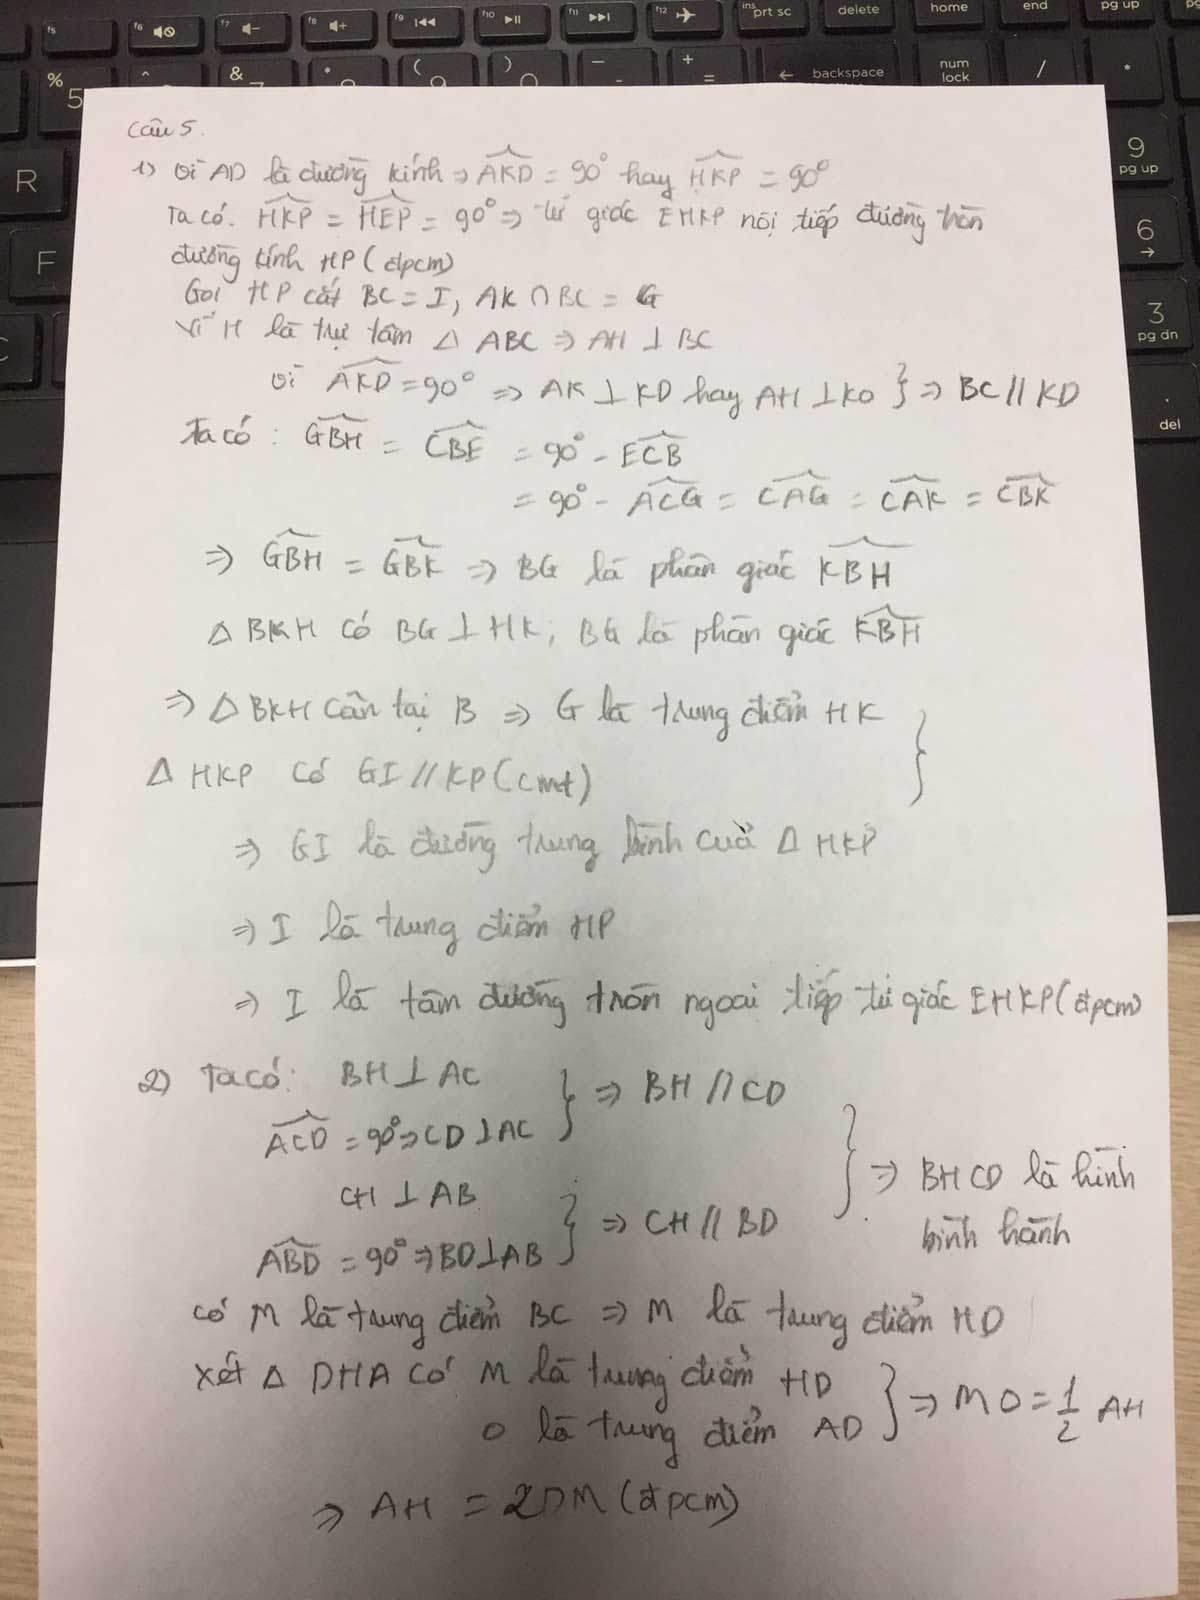 f5 f6 f7 f8 f9 f10 f11 f12 ins prt sc delete home end pg up
% 5 ^ & * ( ) — - + = ← backspace num lock / *
R
F
9 pg up
6 →
3 pg dn
. del
Câu 5.
1) Vì AD là đường kính => AKD = 90° hay HKP = 90°
Ta có. HKP = HEP = 90° => tứ giác EHKP nội tiếp đường tròn
đường kính HP (đpcm)
Gọi HP cắt BC = I, AK ∩ BC = G
Vì H là trực tâm △ ABC => AH ⊥ BC
Vì AKD = 90° => AK ⊥ KD hay AH ⊥ KD } => BC // KD
Ta có : GBH = CBE = 90° - ECB
= 90° - ACG = CAG = CAK = CBK
=> GBH = GBK => BG là phân giác KBH
△ BKH có BG ⊥ HK; BG là phân giác KBH
=> △ BKH cân tại B => G là trung điểm HK
△ HKP có GI // KP (cmt) }
=> GI là đường trung bình của △ HKP
=> I là trung điểm HP
=> I là tâm đường tròn ngoại tiếp tứ giác EHKP (đpcm)
2) Ta có: BH ⊥ AC
ACD = 90° => CD ⊥ AC } => BH // CD
CH ⊥ AB
ABD = 90° => BD ⊥ AB } => CH // BD
} => BHCD là hình
bình hành
có M là trung điểm BC => M là trung điểm HD
Xét △ DHA có M là trung điểm HD
O là trung điểm AD } => MO = 1/2 AH
=> AH = 2OM (đpcm)